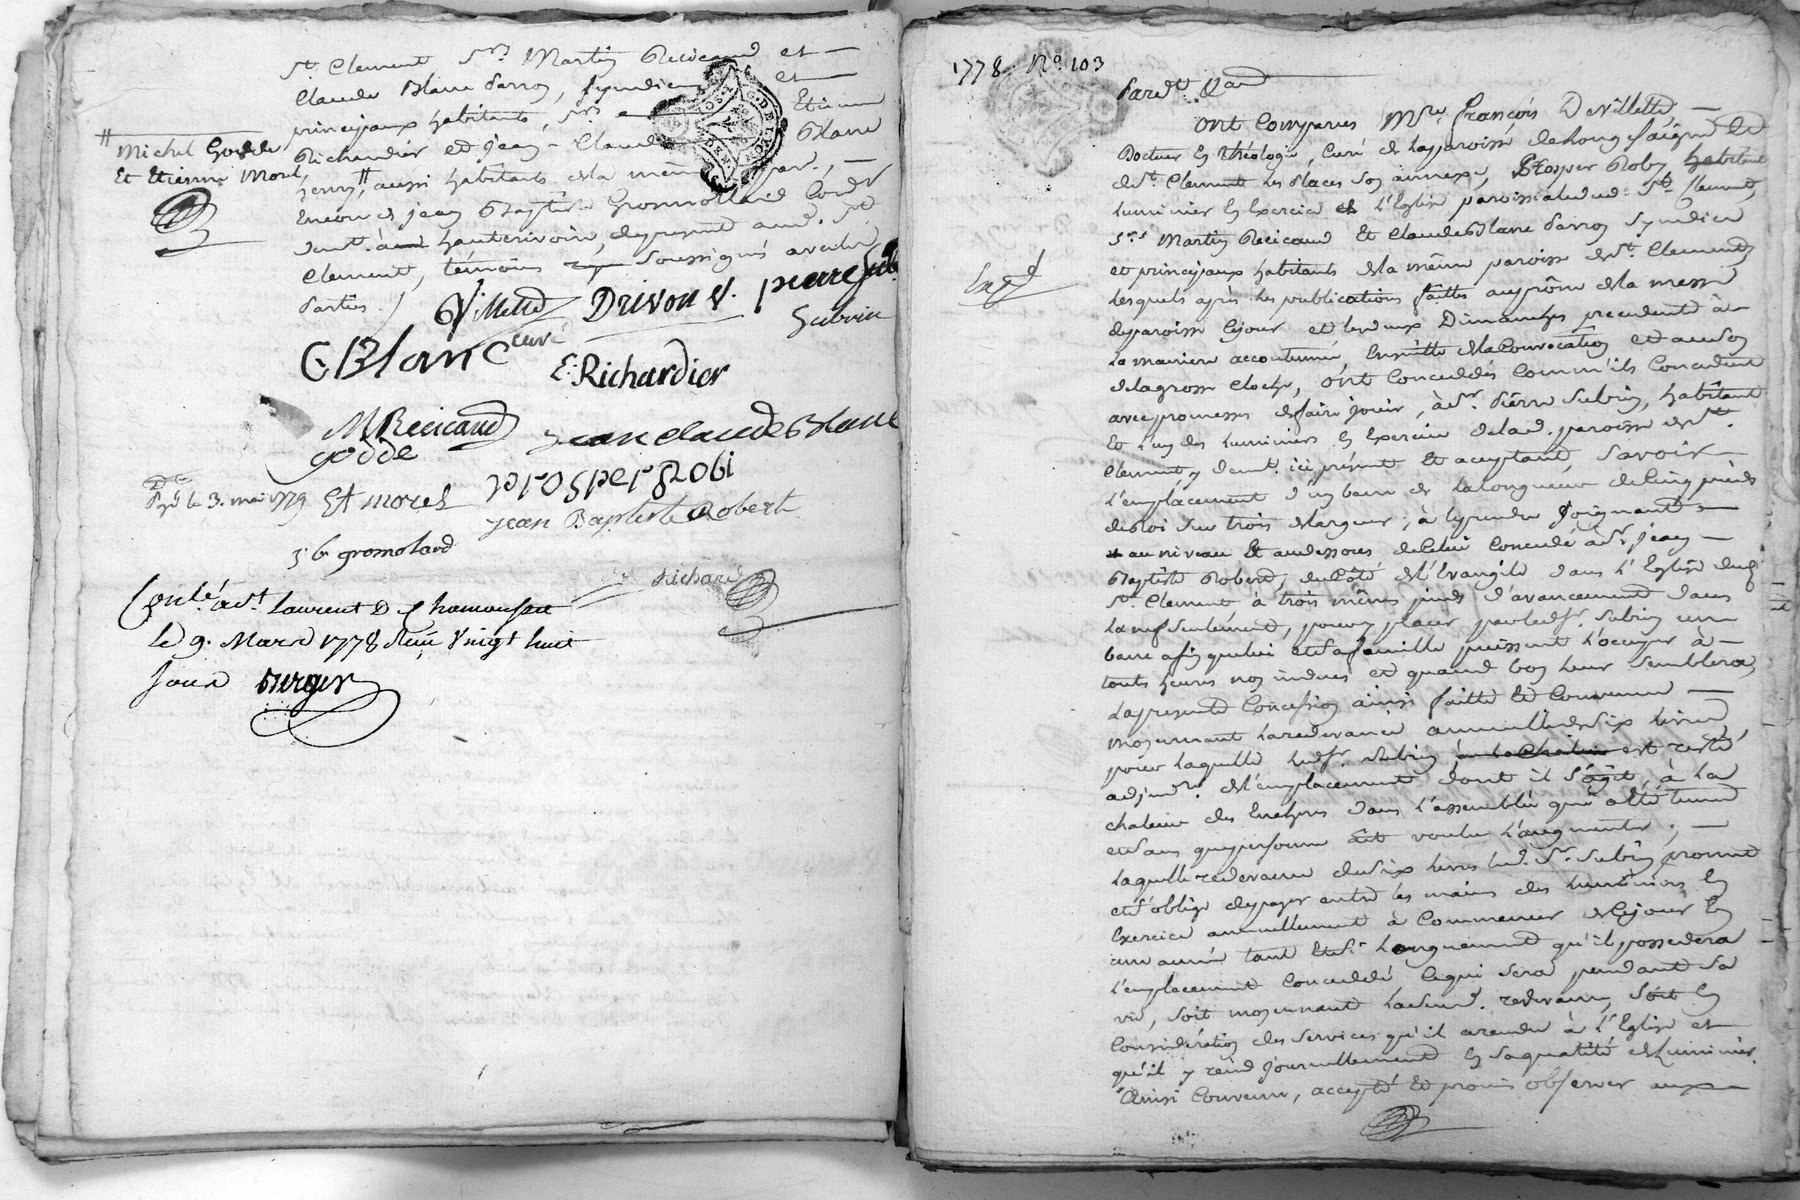 St. Clement Srs. Martin Recicaud et
Claude Blanc Parron, syndics et
principaux habitants, Srs. Etienne
Richardier et Jean-Claude Blanc
aussi habitants de la même par.,
encore Jean Baptiste Gromollard Cordr
demt. à hauterivoire, depresent aud. St
Clement, témoins soussignés avec les
Parties ./.
# Michel Godde
Et Etienne Morel
Villette curé
Drivon V.
pierre Subrin
C Blanc
E: Richardier
M Recicaud
jean claude Blanc
godde
prosper Robi
Payé le 3. mai 1779
Et morel
jean Baptiste Robert
j b gromolard
Richard
Contlé. à St Laurent D Chamousset
le 9. Mars 1778 Reçu Vingt huit
sous Berger
1778 No. 103
Pardt. Que
Ont Comparus Msre françois DeVillette
Docteur en théologie, Curé de la paroisse de Longessaigne et
de St. Clement les places son annexe, Prosper Roby habitant
Luminier en Exercice de L'Eglise paroissiale dud. St. Clement,
Srs. Martin Recicaud Et Claude Blanc Parron Syndics
et principaux habitants de la même paroisse de St. Clement
Lesquels après les publications faittes au prône de la messe
de paroisse ce jour et les deux Dimanches precedents à
la maniere accoutumée, Ensuitte de la Convocation et au son
de la grosse Cloche, ont Conceddés Comm'ils Concedent
avec promesses de faire jouir, à Sr. Pierre Subrin, habitant
Et l'un des Luminiers en Exercice de lad. paroisse de St.
Clement, y demt. ici présent Et acceptant, Savoir
L'emplacement d'un banc de La longueur de Cinq pieds
de Roi sur trois de largeur, à le prendre joignant
au niveau Et au dessous de Celui Concedé à Sr. Jean
Baptiste Robert, du Côté de L'Evangile dans L'Eglise dud.
St. Clement à trois mêmes pieds d'avancement dans
La nef seulement, pour y placer par led. Sr. Subrin un
banc afin que lui et sa famille puissent L'occuper à
touts heures non indues et quand bon leur semblera,
La presente Concession ainsi faitte Et Convenue
moyennant La redevance annuelle de six livres,
pour laquelle led. Sr. Subrin est resté
adjudre. de L'emplacement dont il s'agit, à la
chaleur des Encheres dans L'assemblée qui a été tenue
et sans que personne ait voulu L'augmenter,
Laquelle redevance de six livres led. Sr. Subrin promet
et s'oblige de payer entre les mains des Luminiers En
Exercice annuellement à Commencer de ce jour En
une année tant Et Si Longuement qu'il possedera
L'emplacement Conceddé Ce qui sera pendant sa
vie, soit moyennant Lad. redevance, soit En
Consideration des services qu'il a rendu à L'Eglise et
qu'il y rend journellement En sa qualité de Luminier.
Ainsi Convenu, accepté Et promis observer aux